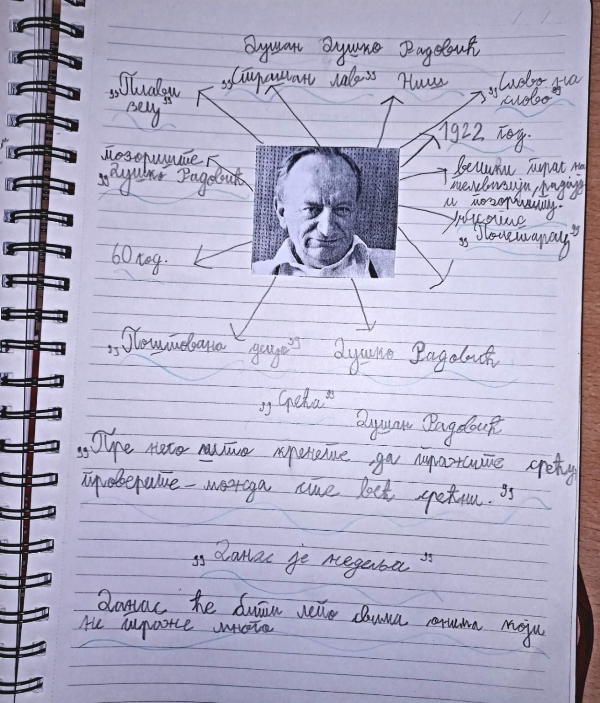 Душан Душко Радовић
„Плави зец”
„Страшан лав”
Ниш
„Слово на слово”
1922 год.
позориште
„Душко Радовић”
велики траг на
телевизији, радију
и позоришту.
часопис
„Полетарац”
60 год.
„Поштована децо”
Душко Радовић
„Срећа”
Душан Радовић
„Пре него што кренете да тражите срећу,
проверите – можда сте већ срећни.”
„Данас је недеља”
Данас ће бити лепо свима онима који
не траже много